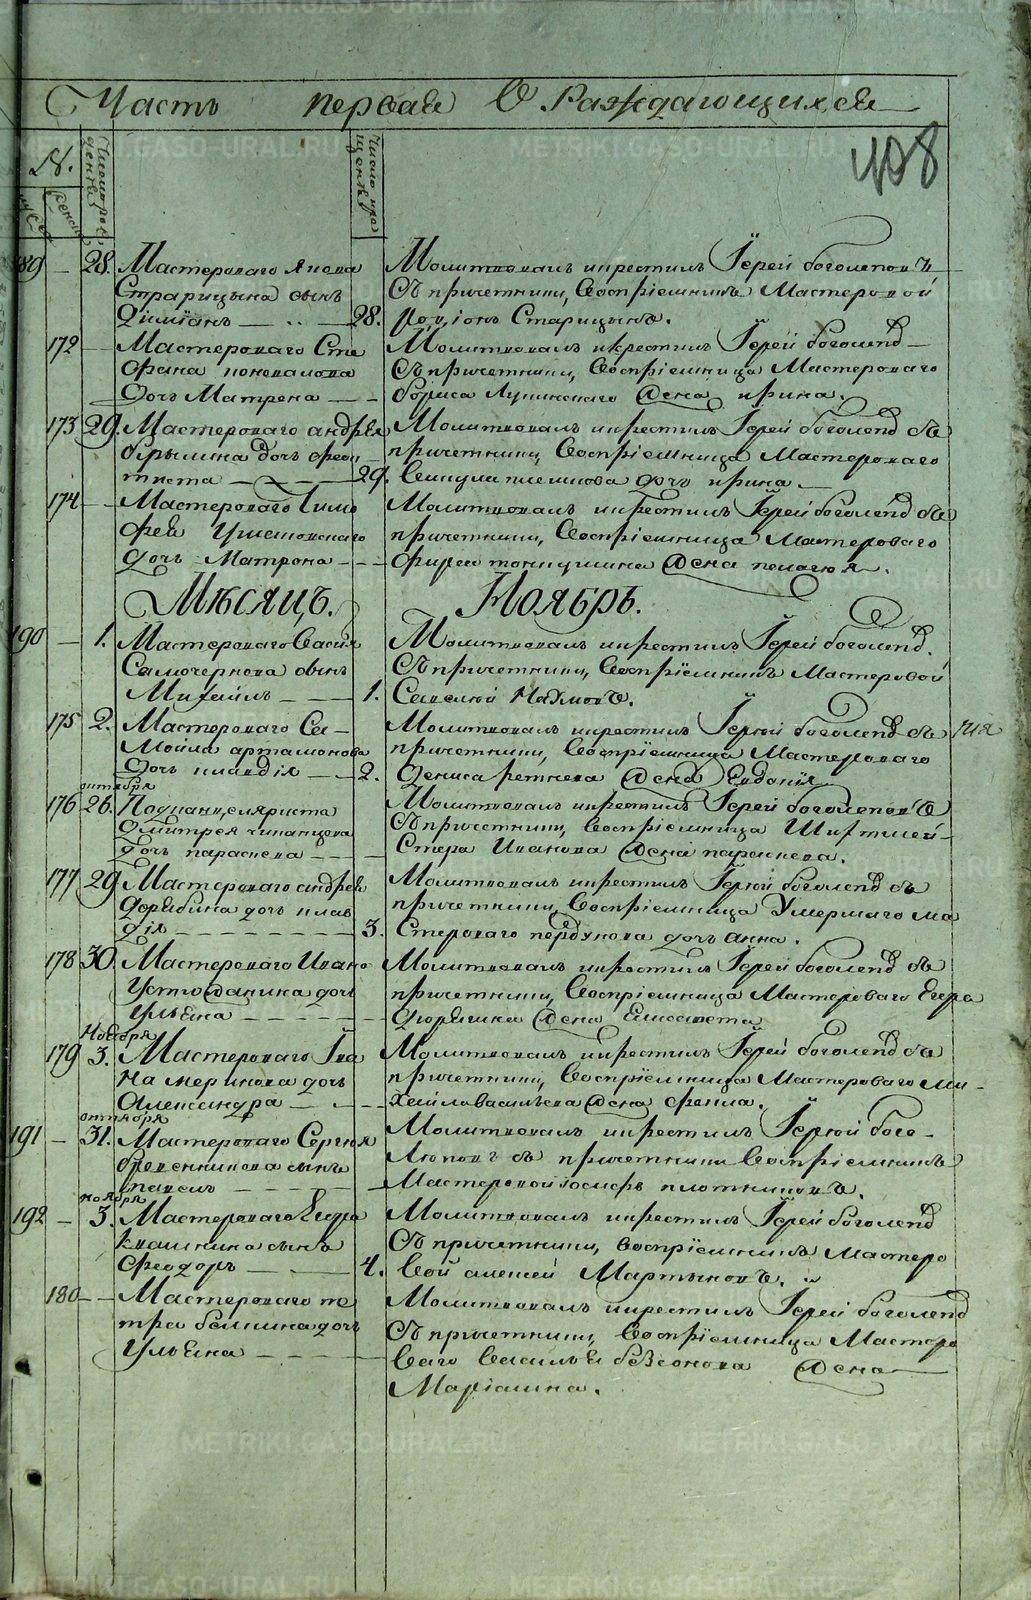 Часть первая О Раждающихся
408
№.
Число рождения
Число крещения
189 — 28. Мастероваго Якова
Старицына сынъ
Димїанъ — 28.
Молитвовалъ и крестилъ Їерей боголеповъ
Съ причетники, Воспрїемникъ Мастеровой
Старицынъ.
172 — Мастероваго Сте
фана коновалова
Дочь Матрена —
Молитвовалъ и крестилъ Їерей боголепо
Съ причетники, Воспрїемница Мастероваго
бориса Лупинскаго Жена ирина.
173 29. Мастероваго андрея
дочь феок
тиста — 29.
Молитвовалъ и крестилъ Їерей боголепо съ
причетники, Воспрїемница Мастероваго
Викула плешкова дочь ирина.
174 — Мастероваго Тимо
фея Ушаковскаго
дочь Матрона —
Молитвовалъ и крестилъ Їерей боголепо съ
причетники, Воспрїемница Мастероваго
Жена пелагея.
Мѣсяцъ. Ноябрь.
190 — 1. Мастероваго Василя
Самочернова сынъ
Михаилъ — 1.
Молитвовалъ и крестилъ Їерей боголепо.
Съ причетники, Воспрїемникъ Мастеровой
Савелий Наумовъ.
175 2. Мастероваго Са-
мойла артамонова
Дочь клавдїя — 2.
Молитвовалъ и крестилъ Їерей боголепо съ
причетники, Воспрїемница Мастероваго
Дениса ретнева Жена Евдокїя
октября
176 26. Подканцеляриста
Димитрея
Дочь параскева —
Молитвовалъ и крестилъ Їерей боголеповъ
Съ причетники, Воспрїемница Шихтмей-
Стера Иванова Жена параскева.
177 29 Мастероваго андрея
дорябина дочь клав
дїя — 3.
Молитвовалъ и крестилъ Їерей боголепо съ
причетники, Воспрїемница Умершаго ма
Стероваго пердунова дочь анна.
178 30. Мастероваго Ивана
Устюжанина дочь
Ульяна —
Молитвовалъ и крестилъ Їерей боголепо съ
причетники, Воспрїемница Мастероваго Егора
Жена Елисавета
Ноября
179 3. Мастероваго Їва
на меринова дочь
Александра —
Молитвовалъ и крестилъ Їерей боголепо съ
причетники, Воспрїемница Мастероваго Ми-
хайла васильева Жена фекла.
октября
191 — 31. Мастероваго Сергея
бревенникова сынъ
павелъ —
Молитвовалъ и крестилъ Їерей бого-
леповъ съ причетники Воспрїемникъ
Мастеровой Їосифъ плотниковъ.
ноября
192 — 3. Мастероваго Егора
квашнина сынъ
феодоръ — 4.
Молитвовалъ и крестилъ Їерей боголепо
Съ причетники, воспрїемникъ мастеро
вой алексей Мартыновъ.
180 — Мастероваго пе
тра дочь
Ульяна —
Молитвовалъ и крестилъ Їерей боголепо
Съ причетники, Воспрїемница Мастеро
ваго Василья безсонова Жена
Марїанна.
METRIKI.GASO-URAL.RU